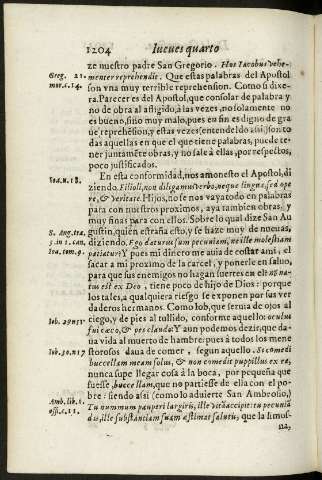 1204 Iueues quarto
ze nuestro padre San Gregorio. Hos Iacobus vehe-
Greg. 21. menter reprehendit. Que estas palabras del Apostol
mor. c. 14. son vna muy terrible reprehension. Como si dixe-
ra. Parecer es del Apostol, que consolar de palabra y
no de obra al afligido, à las vezes, no solamente no
es bueno, sino muy malo, pues en fin es digno de gra
ue reprehēsion, y estas vezes (entendelo assi) son to
das aquellas en que el que tiene palabras, puede te-
ner juntamēte obras, y no sale à ellas, por respectos,
poco justificados.
Ioa. n. 18. En esta conformidad, nos amonesto el Apostol, di
ziendo. Filioli, non diligamus verbo, neque lingua, sed ope
re, & veritate. Hijos, no se nos vaya todo en palabras
para con nuestros proximos, aya tambien obras, y
muy finas para con ellos. Sobre lo qual dize San Au
S. Aug. tra. gustin, quien estraña esto, y se haze muy de nueuas,
5. in 1. can. diziendo. Ego daturus sum pecuniam, ne ille molestiam
Ioa. tom. 9. patiatur? Y pues mi dinero me auia de costar à mi, el
sacar a mi proximo de la carcel, y ponerle en saluo,
para que sus enemigos no hagan suertes en el: ex na-
tus est ex Deo, tiene poco de hijo de Dios: porque
los tales, a qualquiera riesgo se exponen por sus ver
daderos hermanos. Como Iob, que seruia de ojos al
ciego, y de pies al tullido, conforme aquello: oculus
Iob. 29 n 15 fui cæco, & pes claudo: Y aun podemos dezir, que da-
ua vida al muerto de hambre: pues à todos los mene
Iob. 30. n 17 sterosos daua de comer, segun aquello. Si comedi
buccellam meam solus, & non comedit pupillus ex ea,
nunca supe llegar cosa à la boca, por pequeña que
fuesse, buccellam, que no partiesse de ella con el po-
bre: siendo assi (como lo aduierte San Ambrosio,)
Amb. lib. 1. Tu nummum pauperi largiris, ille vitã accipit: tu pecuniã
offi. c. 11. dãs, ille substantiam suam æstimat salutis, que la limos-
na,